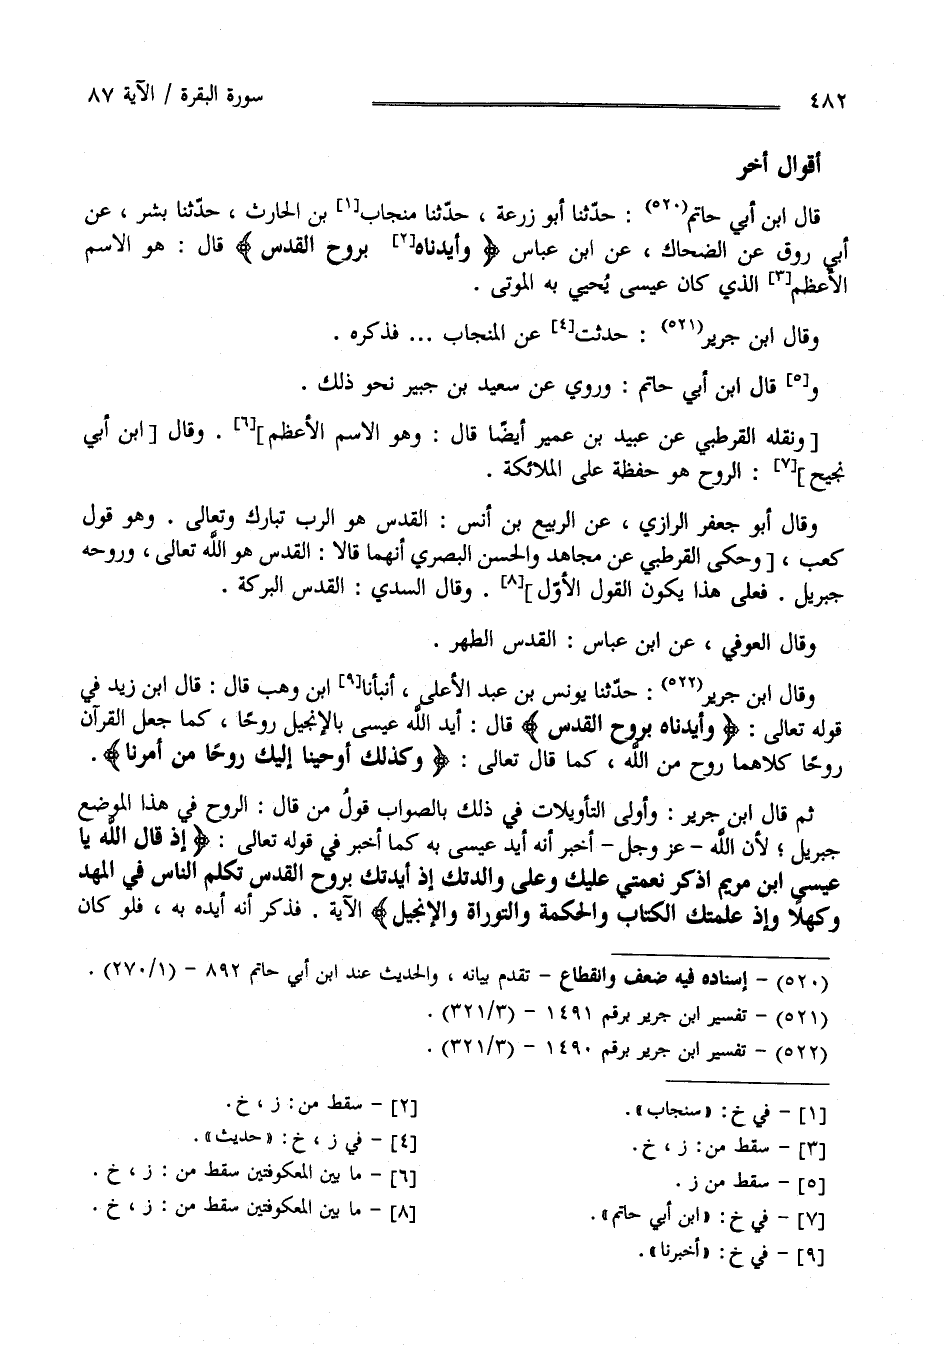 ٤٨٢ سورة البقرة / الآية ٨٧
أقوال أخر
قال ابن أبي حاتم(٥٢٠) : حدّثنا أبو زرعة ، حدّثنا منجاب[١] بن الحارث ، حدّثنا بشر ، عن
أبي روق عن الضحاك ، عن ابن عباس ﴿ وأيدناه[٢] بروح القدس ﴾ قال : هو الاسم
الأعظم[٣] الذي كان عيسى يُحيي به الموتى .
وقال ابن جرير(٥٢١) : حدثت[٤] عن المنجاب ... فذكره .
و[٥] قال ابن أبي حاتم : وروي عن سعيد بن جبير نحو ذلك .
[ ونقله القرطبي عن عبيد بن عمير أيضًا قال : وهو الاسم الأعظم ][٦] . وقال [ ابن أبي
نجيح ][٧] : الروح هو حفظة على الملائكة .
وقال أبو جعفر الرازي ، عن الربيع بن أنس : القدس هو الرب تبارك وتعالى . وهو قول
كعب ، [ وحكى القرطبي عن مجاهد والحسن البصري أنهما قالا : القدس هو اللَّه تعالى ، وروحه
جبريل . فعلى هذا يكون القول الأوّل ][٨] . وقال السدي : القدس البركة .
وقال العوفي ، عن ابن عباس : القدس الطهر .
وقال ابن جرير(٥٢٢) : حدّثنا يونس بن عبد الأعلى ، أنبأنا[٩] ابن وهب قال : قال ابن زيد في
قوله تعالى : ﴿ وأيدناه بروح القدس ﴾ قال : أيد اللَّه عيسى بالإنجيل روحًا ، كما جعل القرآن
روحًا كلاهما روح من اللَّه ، كما قال تعالى : ﴿ وكذلك أوحينا إليك روحًا من أمرنا ﴾ .
ثم قال ابن جرير : وأولى التأويلات في ذلك بالصواب قولُ من قال : الروح في هذا الموضع
جبريل ؛ لأن اللَّه - عز وجل - أخبر أنه أيد عيسى به كما أخبر في قوله تعالى : ﴿ إذ قال اللَّه يا
عيسى ابن مريم اذكر نعمتي عليك وعلى والدتك إذ أيدتك بروح القدس تكلم الناس في المهد
وكهلًا وإذ علمتك الكتاب والحكمة والتوراة والإنجيل ﴾ الآية . فذكر أنه أيده به ، فلو كان
(٥٢٠) - إسناده فيه ضعف وانقطاع - تقدم بيانه ، والحديث عند ابن أبي حاتم ٨٩٢ - (٢٧٠/١) .
(٥٢١) - تفسير ابن جرير برقم ١٤٩١ - (٣٢١/٣) .
(٥٢٢) - تفسير ابن جرير برقم ١٤٩٠ - (٣٢١/٣) .
[١] - في خ : «سنجاب» . [٢] - سقط من : ز ، خ .
[٣] - سقط من : ز ، خ . [٤] - في ز ، خ : «حديث» .
[٥] - سقط من ز . [٦] - ما بين المعكوفتين سقط من : ز ، خ .
[٧] - في خ : «ابن أبي حاتم» . [٨] - ما بين المعكوفتين سقط من : ز ، خ .
[٩] - في خ : «أخبرنا» .